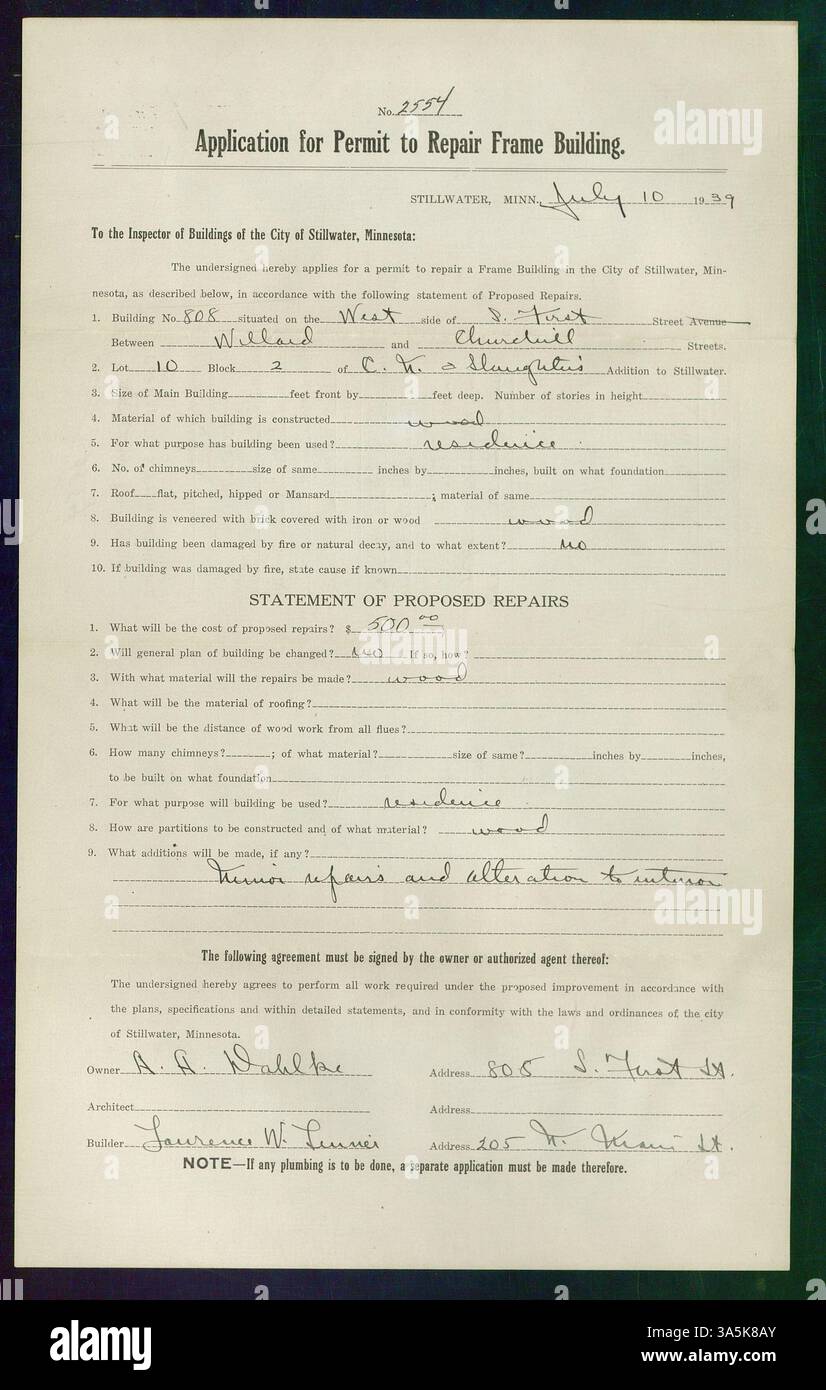 No. 2554
Application for Permit to Repair Frame Building.
STILLWATER, MINN., July 10 1939
To the Inspector of Buildings of the City of Stillwater, Minnesota:
The undersigned hereby applies for a permit to repair a Frame Building in the City of Stillwater, Min-
nesota, as described below, in accordance with the following statement of Proposed Repairs.
1. Building No. 808 situated on the West side of S. First Street Avenue
Between Willard and Churchill Streets.
2. Lot 10 Block 2 of C. & Slaughter's Addition to Stillwater.
3. Size of Main Building feet front by feet deep. Number of stories in height
4. Material of which building is constructed wood
5. For what purpose has building been used? residence
6. No. of chimneys size of same inches by inches, built on what foundation
7. Roof flat, pitched, hipped or Mansard ; material of same
8. Building is veneered with brick covered with iron or wood wood
9. Has building been damaged by fire or natural decay, and to what extent? no
10. If building was damaged by fire, state cause if known
STATEMENT OF PROPOSED REPAIRS
1. What will be the cost of proposed repairs? $ 500 00
2. Will general plan of building be changed? no If so, how?
3. With what material will the repairs be made? wood
4. What will be the material of roofing?
5. What will be the distance of wood work from all flues?
6. How many chimneys? ; of what material? size of same? inches by inches,
to be built on what foundation
7. For what purpose will building be used? residence
8. How are partitions to be constructed and of what material? wood
9. What additions will be made, if any?
Minor repairs and alteration to interior
The following agreement must be signed by the owner or authorized agent thereof:
The undersigned hereby agrees to perform all work required under the proposed improvement in accordance with
the plans, specifications and within detailed statements, and in conformity with the laws and ordinances of the city
of Stillwater, Minnesota.
Owner A. A. Dahlke Address 805 S. First St.
Architect Address
Builder Laurence W. Address 205 W. St.
NOTE—If any plumbing is to be done, a separate application must be made therefore.
alamy
alamy
alamy
alamy
alamy
Image ID: 3A5K8AY
www.alamy.com